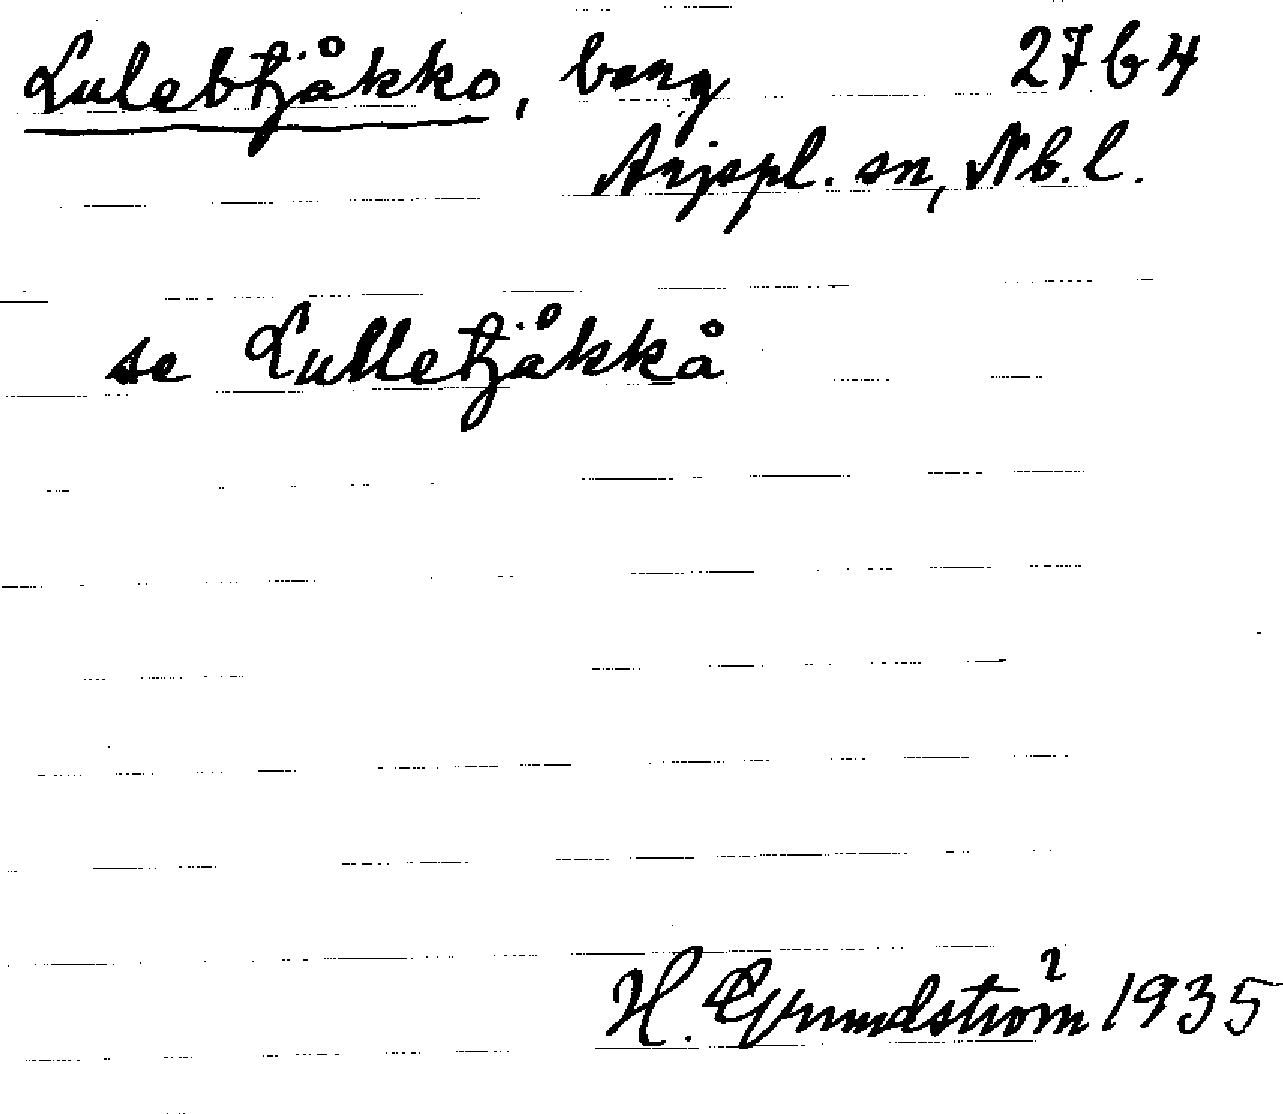 Lulebtjåkko, berg 27b4
Arjspl. sn, Nb.l.
se Lulletjåkkå
H. Grundström 1935